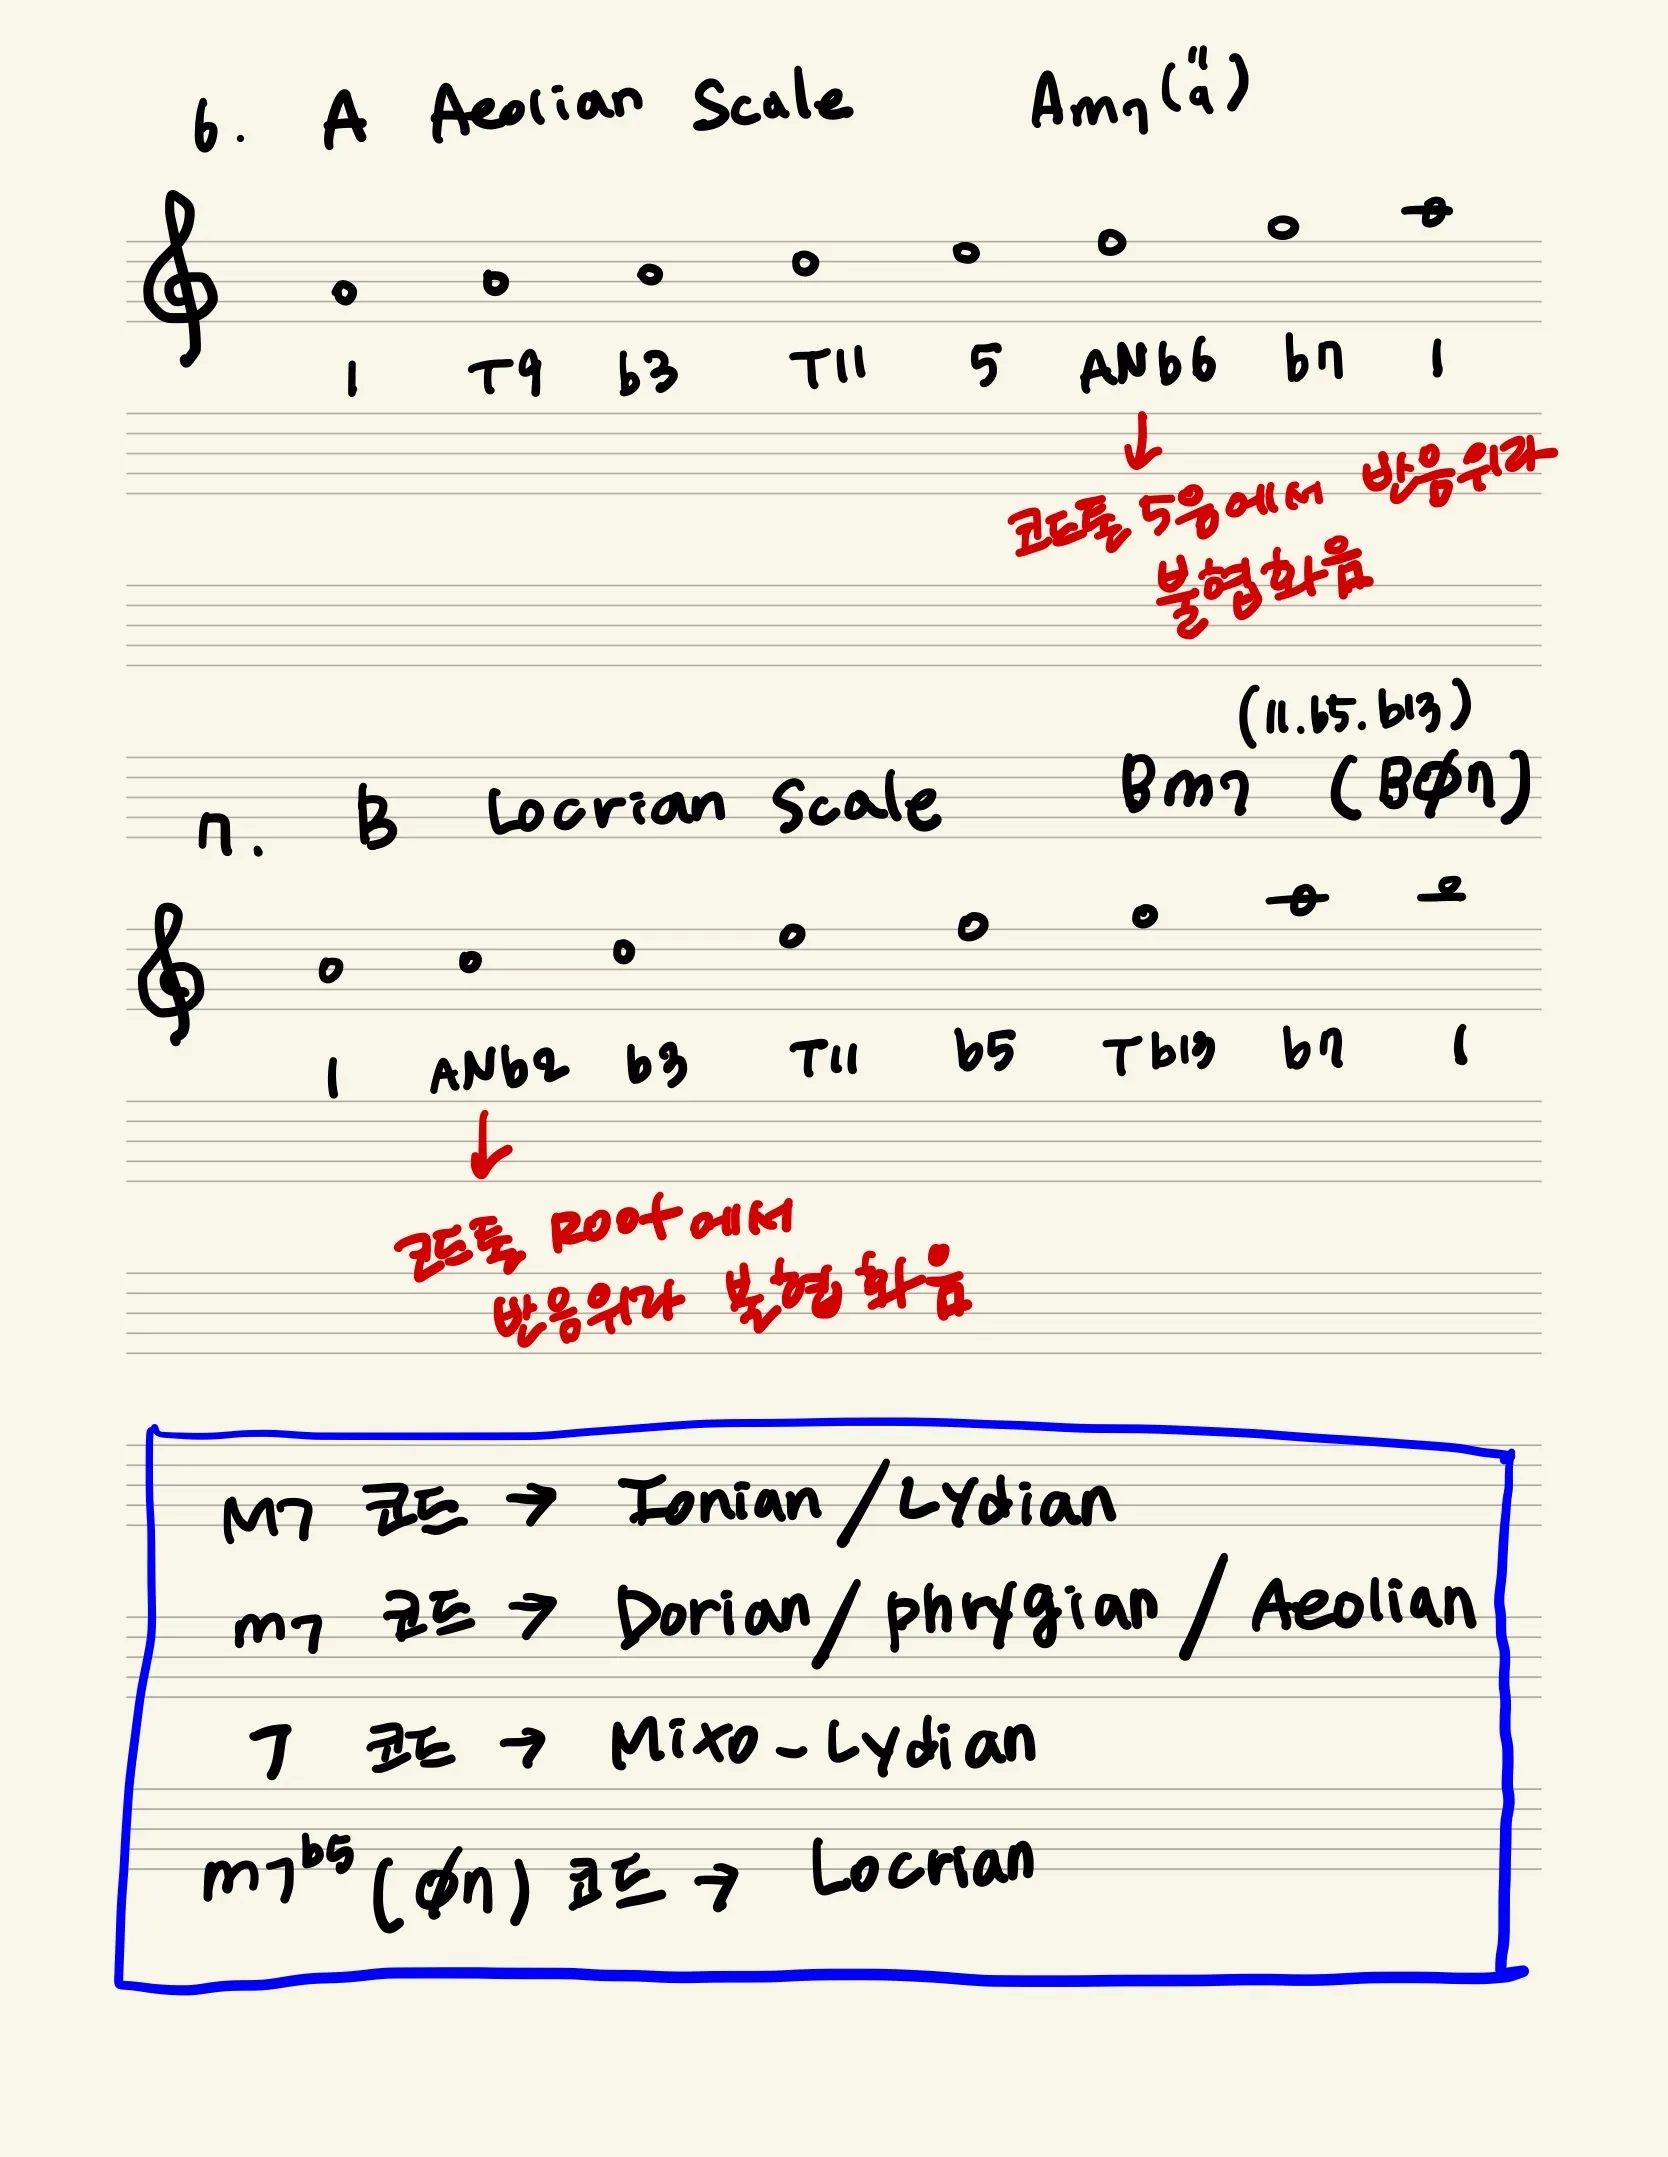 6. A Aeolian Scale Am7(11 9)
1 T9 b3 T11 5 ANb6 b7 1
↓
코드톤 5음에서 반음위라
불협화음
(11.b5.b13)
7. B Locrian Scale Bm7 (BØ7)
1 ANb2 b3 T11 b5 Tb13 b7 1
↓
코드톡 Root에서
반응위라 불협화음
M7 코드 → Ionian/Lydian
m7 코드 → Dorian/phrygian/Aeolian
7 코드 → Mixo-Lydian
m7b5(Ø7) 코드 → Locrian